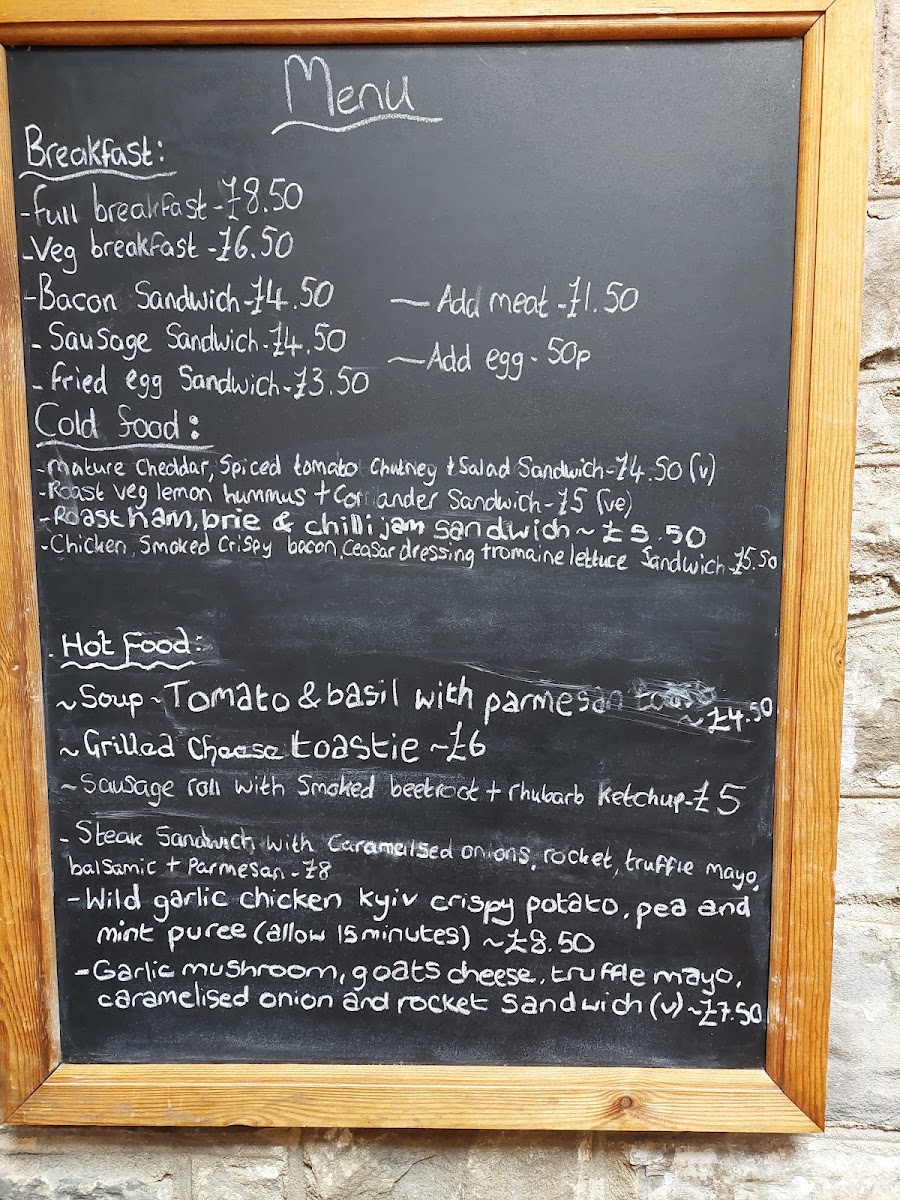 Menu
Breakfast:
- Full breakfast - £8.50
- Veg breakfast - £6.50
- Bacon Sandwich - £4.50
— Add meat - £1.50
- Sausage Sandwich - £4.50
— Add egg - 50p
- Fried egg Sandwich - £3.50
Cold food:
- Mature Cheddar, Spiced tomato Chutney + Salad Sandwich - £4.50 (v)
- Roast veg lemon hummus + Corriander Sandwich - £5 (ve)
- Roast ham, brie & chilli jam sandwich ~ £5.50
- Chicken, Smoked Crispy bacon, Ceasar dressing + romaine lettuce Sandwich - £5.50
Hot Food:
~ Soup ~ Tomato & basil with parmesan toast
~ £4.50
~ Grilled Cheese toastie ~ £6
~ Sausage roll with Smoked beetroot + rhubarb Ketchup - £5
- Steak Sandwich with Caramelised onions, rocket, truffle mayo,
balsamic + Parmesan - £8
- Wild garlic chicken Kyiv crispy potato, pea and
mint puree (allow 15 minutes) ~ £8.50
- Garlic mushroom, goats cheese, truffle mayo,
caramelised onion and rocket Sandwich (v) ~ £7.50